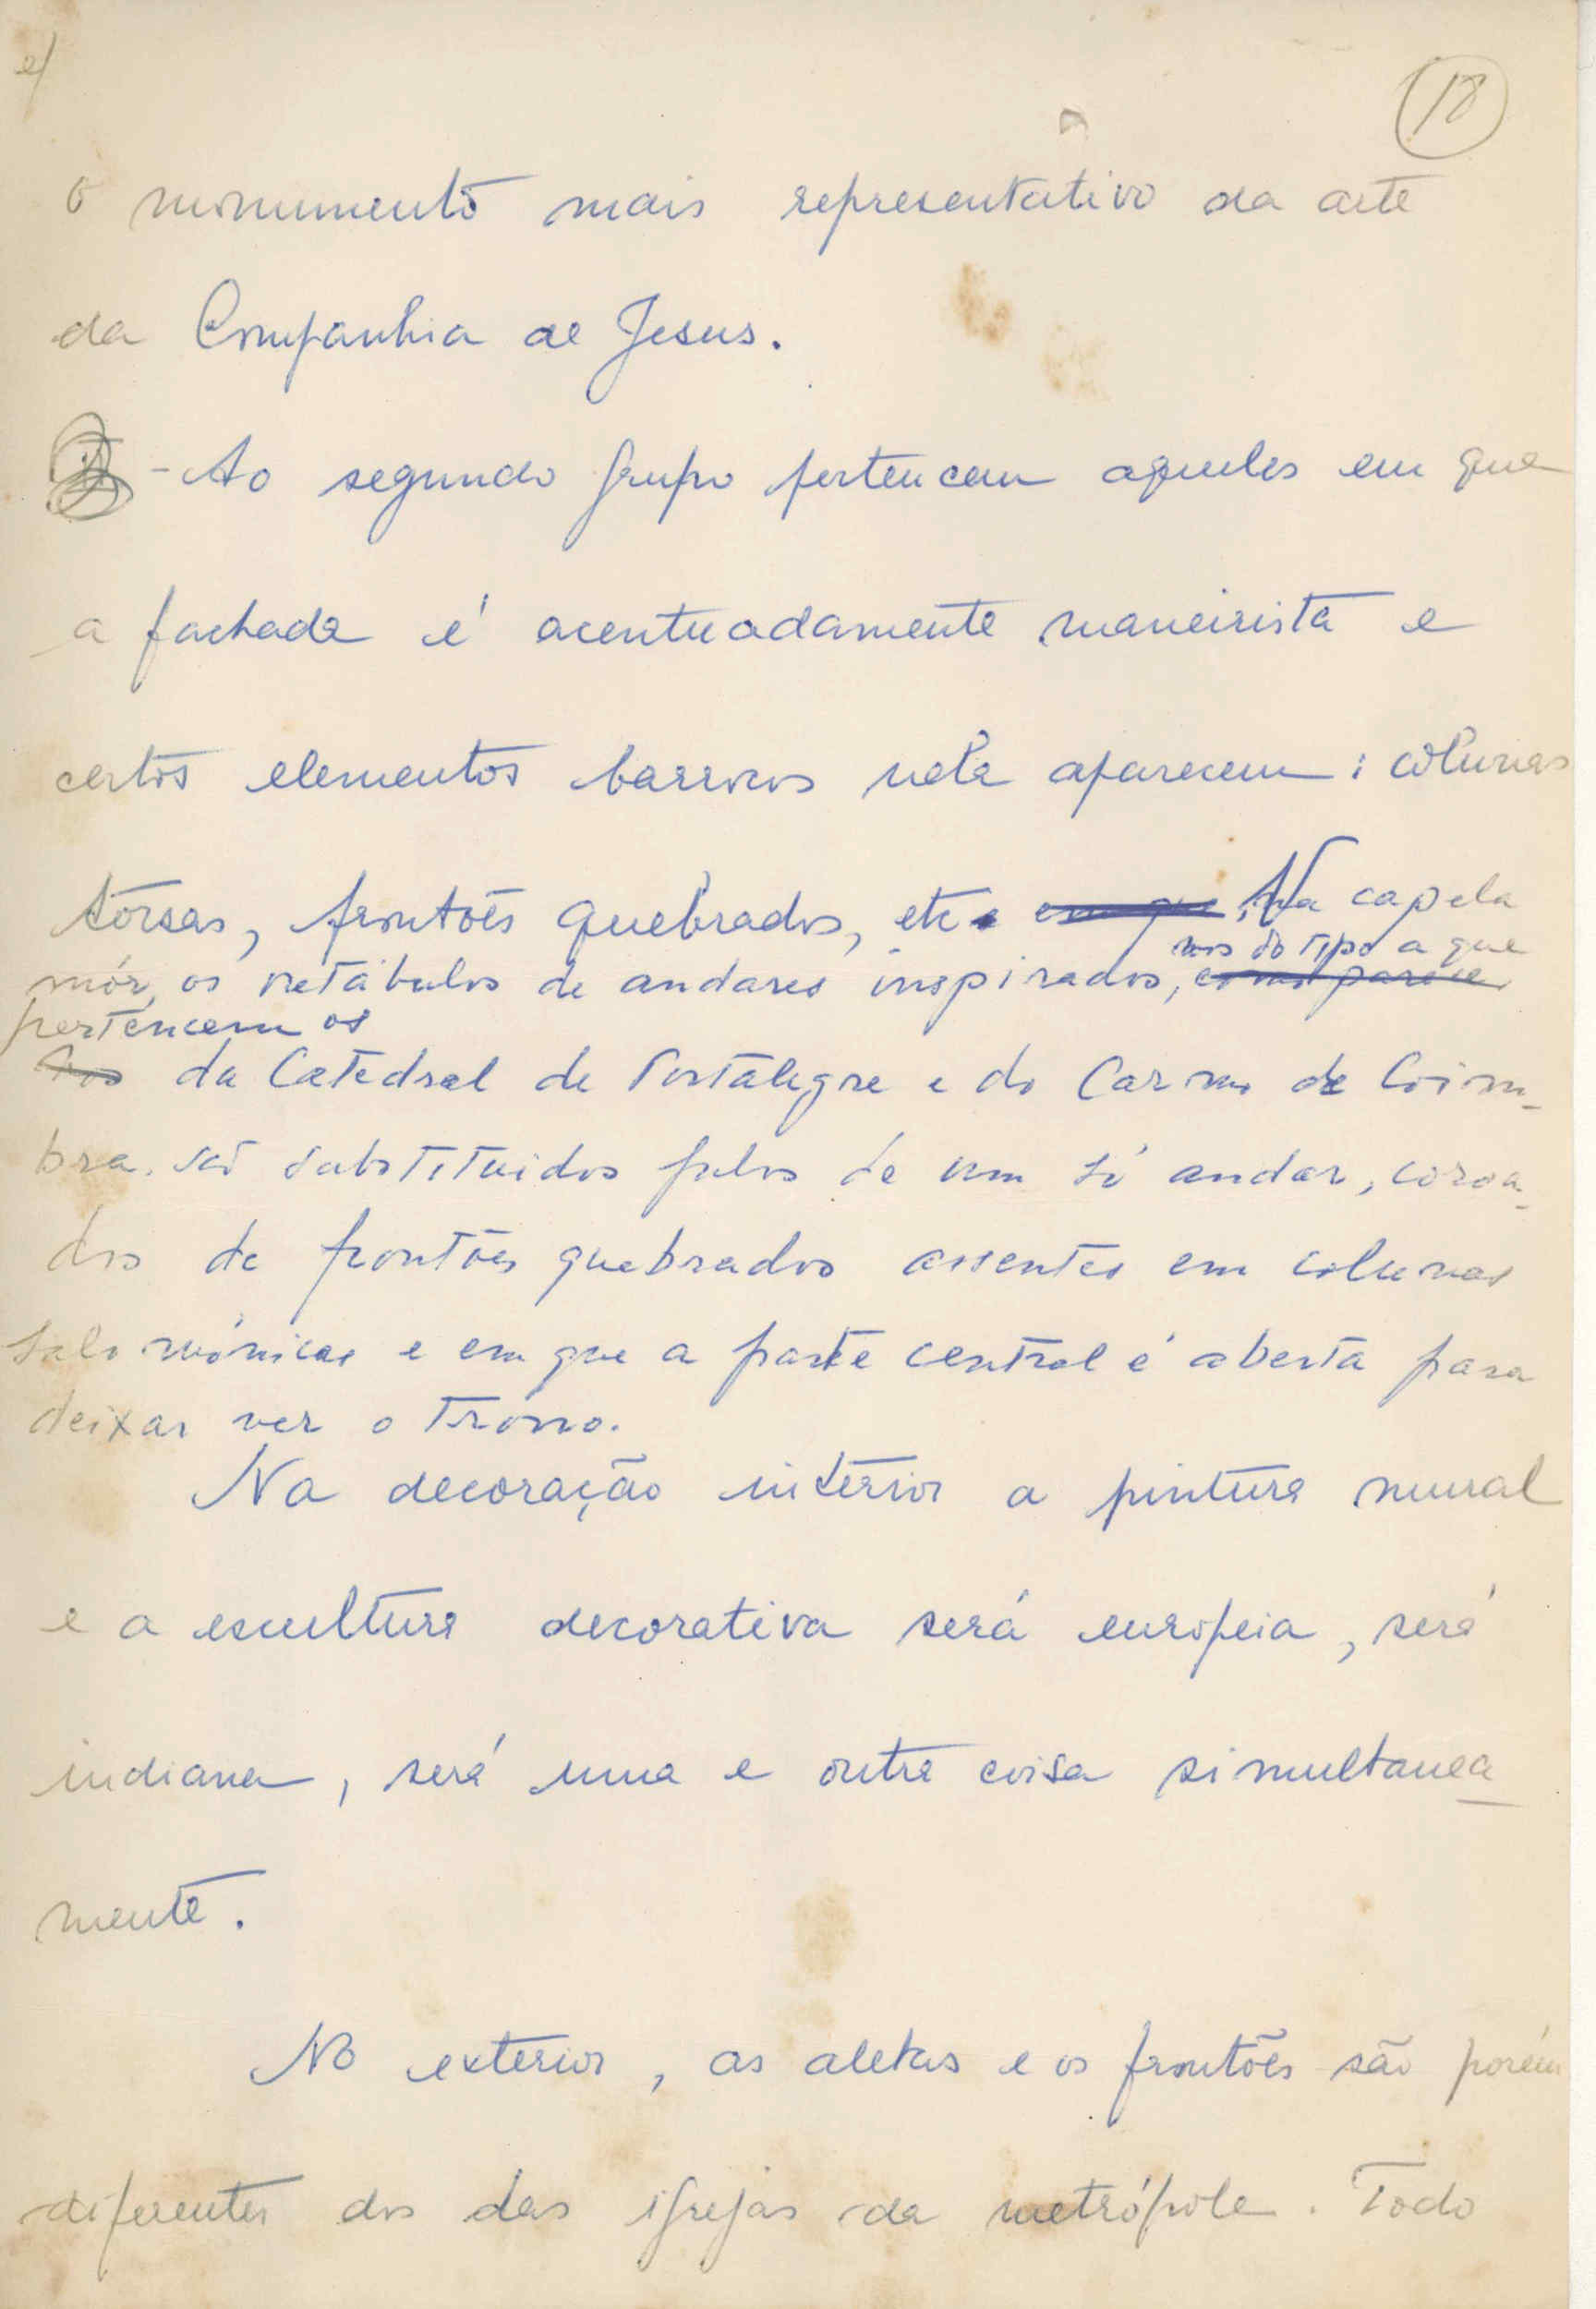 18
o monumento mais representativo da arte
da Companhia de Jesus.
- Ao segundo grupo pertencem aqueles em que
a fachada é acentuadamente maneirista e
certos elementos barrocos nela aparecem: colunas
torsas, frontões quebrados, etc. Na capela
nos do tipo a que
mór, os retábulos de andares inspirados, como parece
pertencem os
da Catedral de Portalegre e do Carmo de Coim-
bra. são substituidos pelos de um só andar, coroa-
dos de frontões quebrados assentes em colunas
salomónicas e em que a parte central é aberta para
deixar ver o trono.
Na decoração interior a pintura mural
e a escultura decorativa será europeia, será
indiana, será uma e outra coisa simultanea
mente.
No exterior, as aletas e os frontões são porém
diferentes dos das igrejas da metrópole. Todo